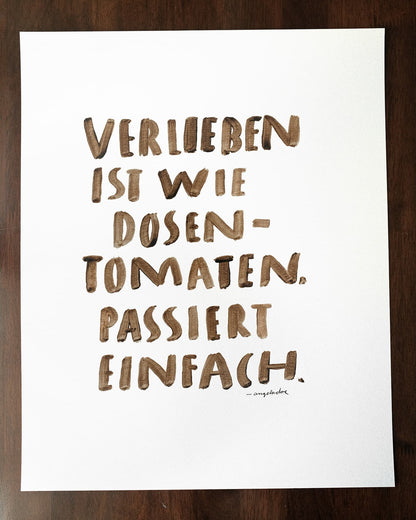 VERLIEBEN
IST WIE
DOSEN-
TOMATEN.
PASSIERT
EINFACH.
—angeladoe